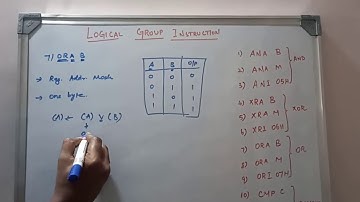 LOGICAL GROUP INSTRUCTION
7) ORA B
→ Reg. Addr Mode
→ One byte
(A) ← (A) ∨ (B)
↓
A B O/P
0 0 0
0 1 1
1 0 1
1 1 1
1) ANA B
2) ANA M
3) ANI 05H
AND
4) XRA B
5) XRA M
6) XRI 05H
XOR
7) ORA B
8) ORA M
9) ORI 07H
OR
10) CMP C